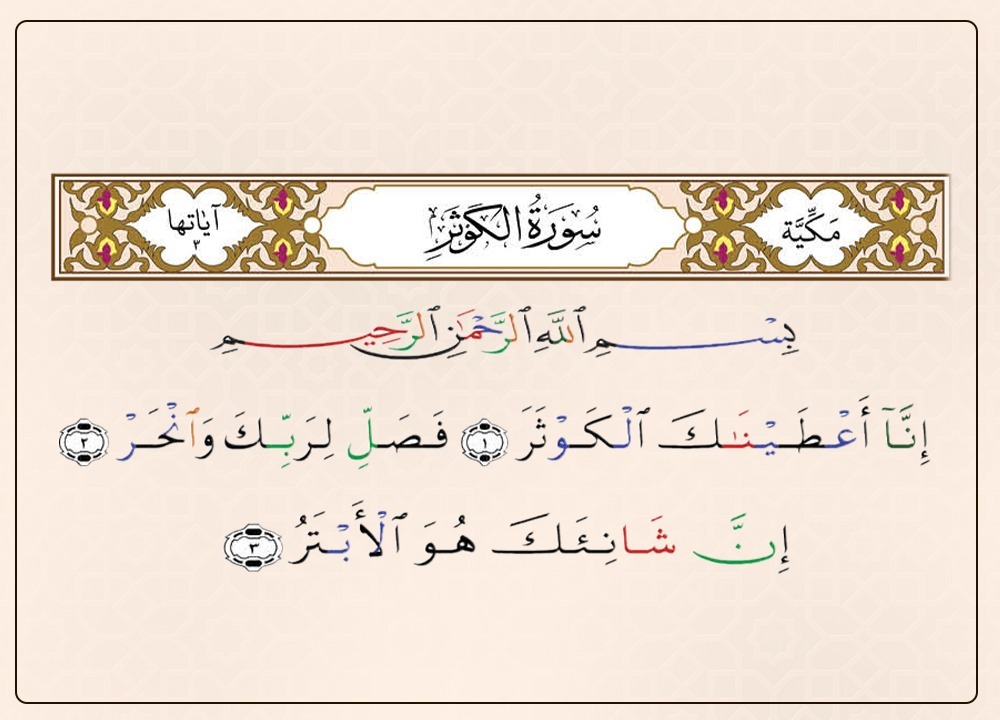 مَكِّيَّة سُورَةُ الكَوْثَرِ آيَاتها ٣
بِسْمِ ٱللَّهِ ٱلرَّحْمَٰنِ ٱلرَّحِيمِ
إِنَّآ أَعْطَيْنَٰكَ ٱلْكَوْثَرَ ١ فَصَلِّ لِرَبِّكَ وَٱنْحَرْ ٢
إِنَّ شَانِئَكَ هُوَ ٱلْأَبْتَرُ ٣